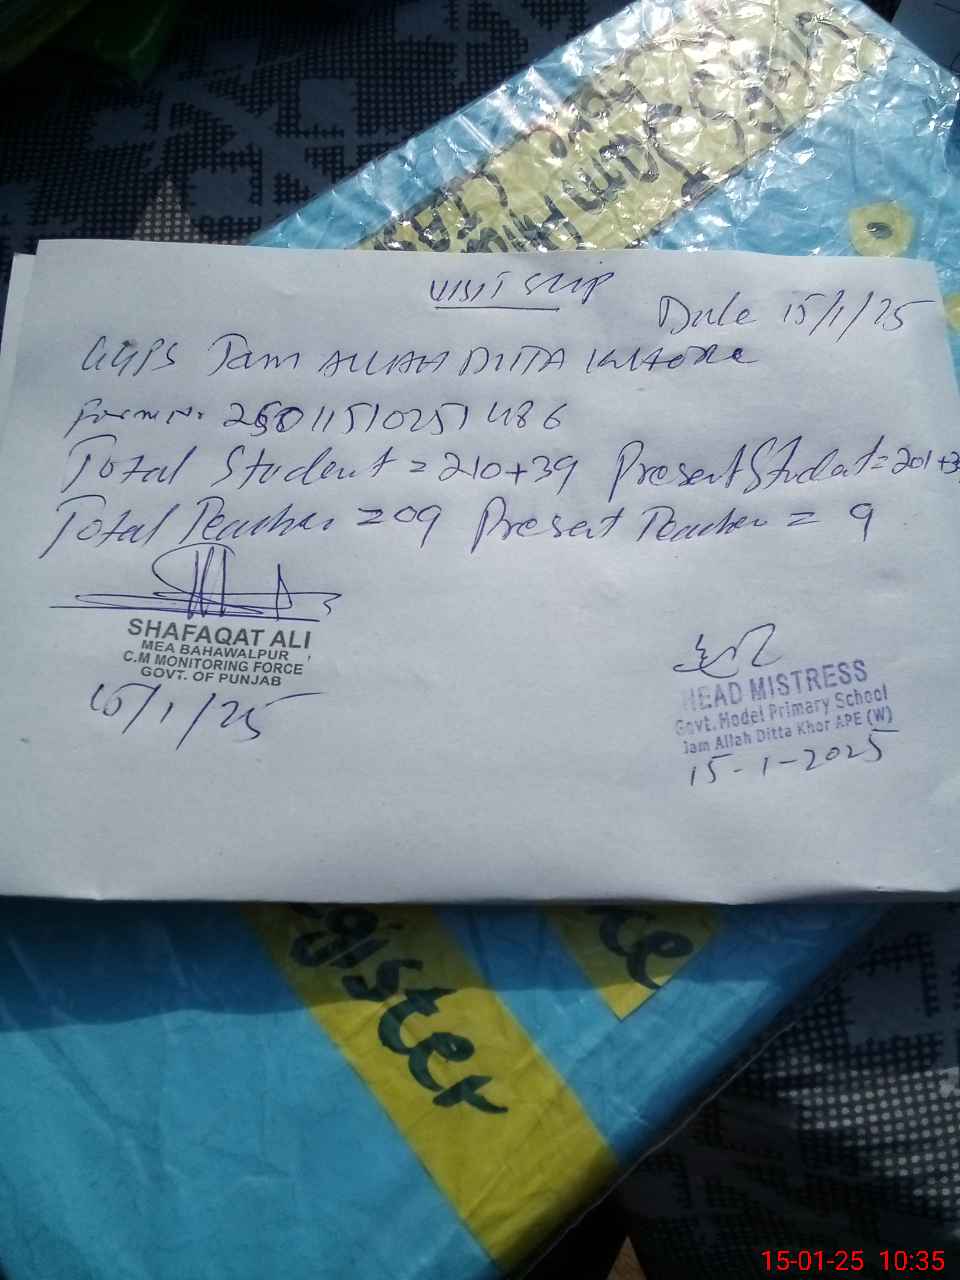 VISIT SLIP
Date 15/1/25
GGPS Jam ALLAH DITTA KHORE
Form No. 25011510251486
Total Student = 210+39 Present Student = 201+3
Total Teacher = 09 Present Teacher = 9
SHAFAQAT ALI
MEA BAHAWALPUR
C.M MONITORING FORCE
GOVT. OF PUNJAB
15/1/25
HEAD MISTRESS
Govt. Model Primary School
Jam Allah Ditta Khor APE (W)
15-1-2025
gister
ce
15-01-25 10:35